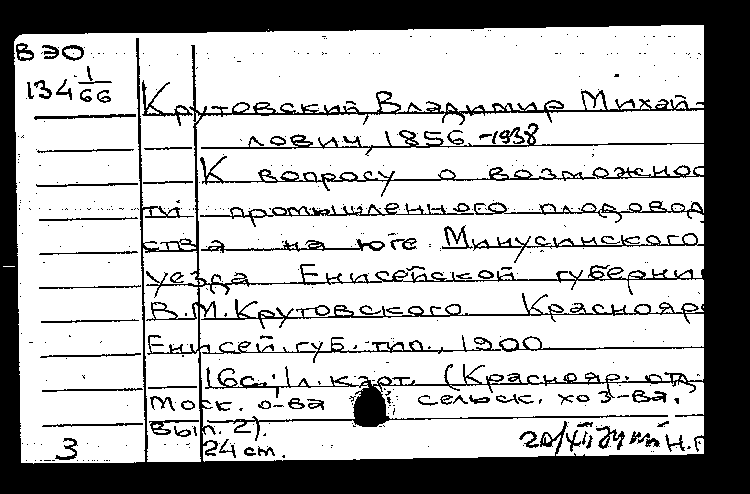 ВЭО
134 1/66
Крутовский, Владимир Михай-
лович, 1856.-1938
К вопросу о возможнос
ти промышленного плодовод
ства на юге Минусинского
уезда Енисейской губерни
В.М.Крутовского. Краснояр
Енисей.губ.тип., 1900
16с.; 1л.карт. (Краснояр. отд-
Моск. о-ва сельск. хоз-ва.
Вып. 2).
3 24 cm.
20/XII Н.Г